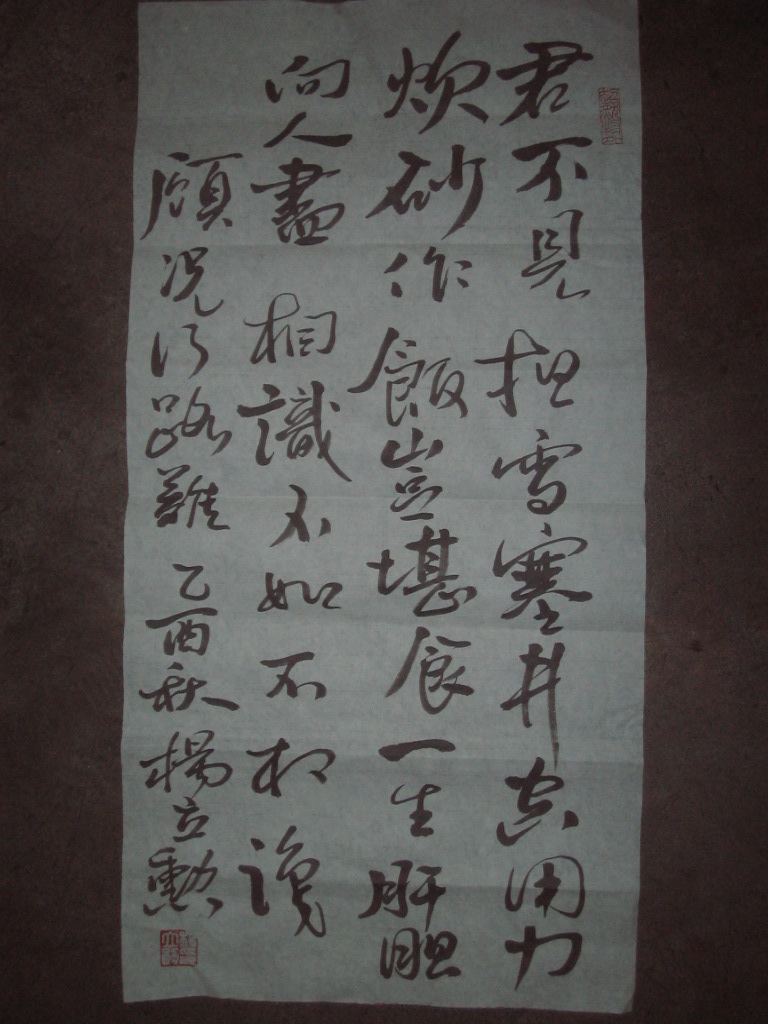 君不見担雪塞井空用力
炊砂作飯豈堪食一生肝胆
向人盡相識不如不相識
顧況行路難乙酉秋楊立勳